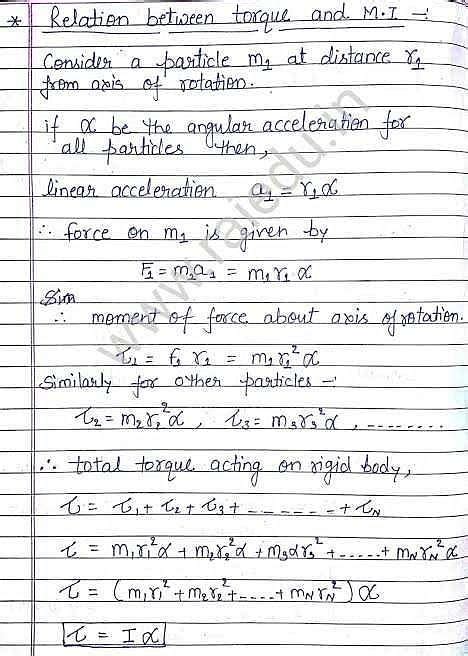 * Relation between torque and M.I -:
Consider a particle m₁ at distance r₁
from axis of rotation.
if α be the angular acceleration for
all particles then,
linear acceleration a₁ = r₁α
∴ force on m₁ is given by
F₁ = m₁a₁ = m₁r₁α
Sim
∴ moment of force about axis of rotation.
τ₁ = f₁ r₁ = m₁r₁²α
Similarly for other particles -:
τ₂ = m₂r₂²α , τ₃ = m₃r₃²α , --------
∴ total torque acting on rigid body,
τ = τ₁ + τ₂ + τ₃ + ------- + τN
τ = m₁r₁²α + m₂r₂²α + m₃αr₃² + ----- + mNrN²α
τ = (m₁r₁² + m₂r₂² + ----- + mNrN²) α
τ = I α
www.rajedu.in